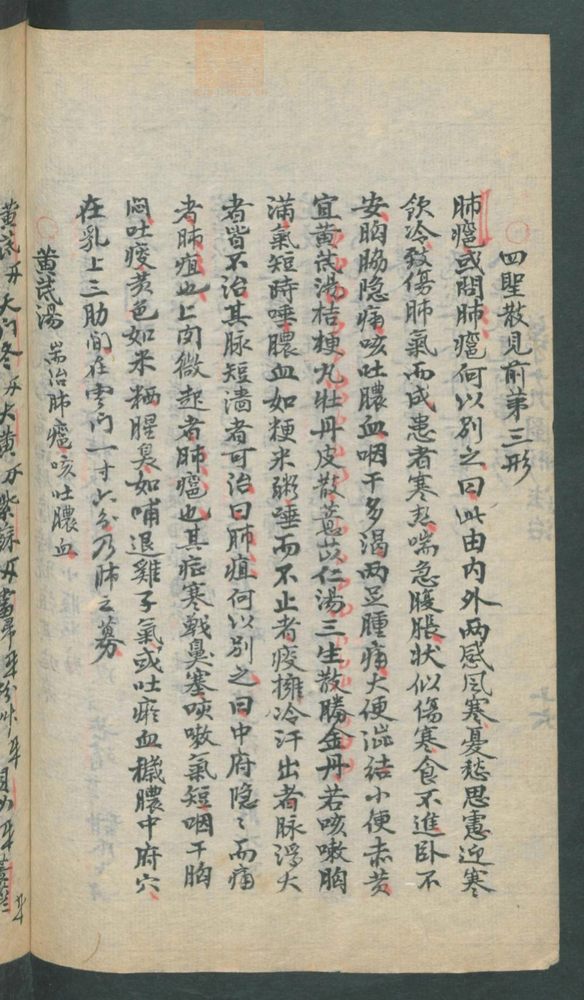 四聖散見前第三形
肺癰或問肺癰何以別之曰此由内外兩感風寒憂愁思慮迎寒
飲冷致傷肺氣而成患者寒热喘急腹脹狀似傷寒食不進卧不
安胸脇隐痛咳吐膿血咽干多渴兩足腫痛大便澁結小便赤黄
宜黄芪湯桔梗丸牡丹皮散薏苡仁湯三生散勝金丹若咳嗽胸
滿氣短時唾膿血如粳米粥唾而不止者痰擁冷汗出者脉浮大
者皆不治其脉短濇者可治曰肺疽何以別之曰中府隐〻而痛
者肺疽也上肉微起者肺癰也其症寒戰鼻塞咳嗽氣短咽干胸
悶吐痰黄色如米粞腥臭如哺退雞子氣或吐瘀血穢膿中府穴
在乳上三肋間在雲门一寸六分乃肺之募
黄芪湯 耑治肺癰咳吐膿血
黄芪 天门冬 大黄 紫蘇